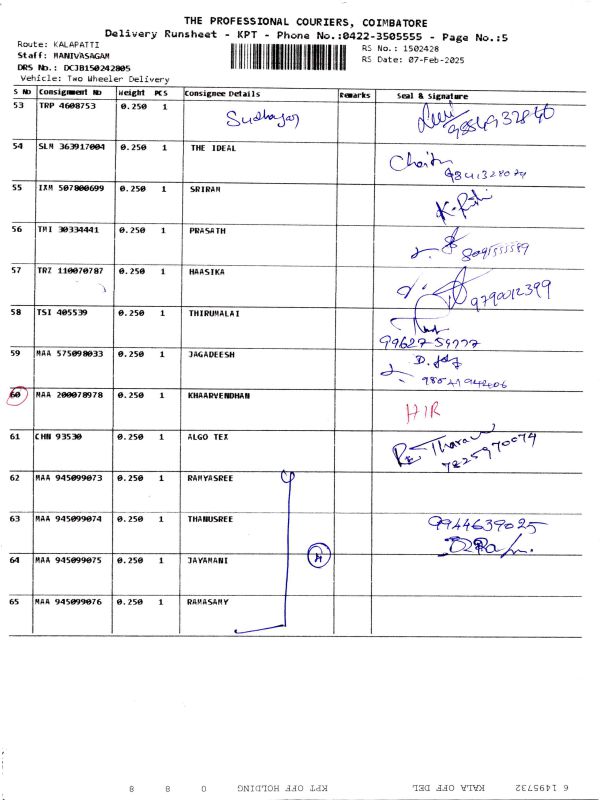 THE PROFESSIONAL COURIERS, COIMBATORE
Delivery Runsheet - KPT - Phone No.:0422-3505555 - Page No.:5
Route: KALAPATTI
RS No.: 1502428
Staff: MANIVASAGAM
RS Date: 07-Feb-2025
DRS No.: DCJB150242805
Vehicle: Two Wheeler Delivery
S No Consignment No Weight PCS Consignee Details Remarks Seal & signature
53 TRP 4608753 0.250 1 Sudhayar
54 SLM 363917004 0.250 1 THE IDEAL
55 IXM 507800699 0.250 1 SRIRAM
56 TMI 30334441 0.250 1 PRASATH
57 TRZ 110070787 0.250 1 HAASIKA 9790012399
58 TSI 405539 0.250 1 THIRUMALAI
59 MAA 575098033 0.250 1 JAGADEESH
60 MAA 200078978 0.250 1 KHAARVENDHAN HIR
61 CHN 93530 0.250 1 ALGO TEX 7825970074
62 MAA 945099073 0.250 1 RAMYASREE
63 MAA 945099074 0.250 1 THANUSREE 9944639025
64 MAA 945099075 0.250 1 JAYAMANI 4
65 MAA 945099076 0.250 1 RAMASAMY
6 1495732 KALA OFF DEL KPT OFF HOLDING 0 8 8